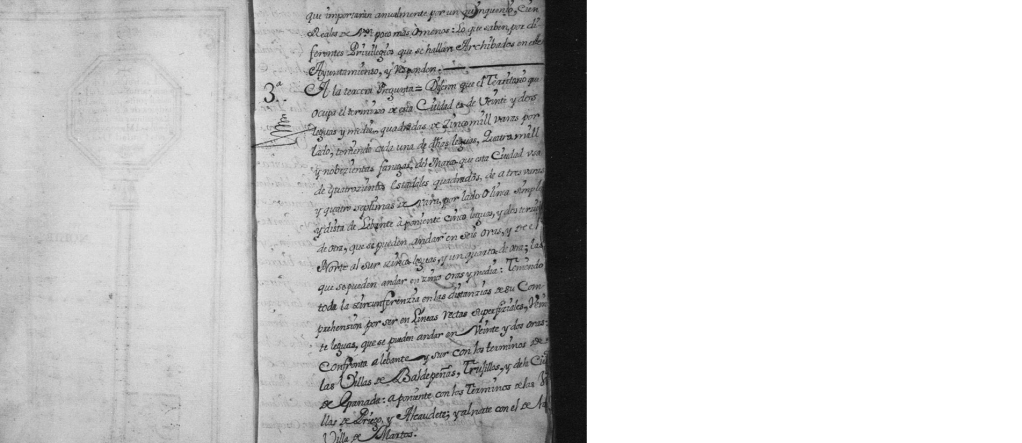 que importarán anualmente por un quinquenio, cien
Reales de Vn. poco mas ó menos: Lo que saben por di
ferentes Privilegios que se hallan Archibados en este
Ayuntamiento, y responden.
3.ª
A la tercera Pregunta = Dijeron que el Territorio que
ocupa el termino de esta Ciudad es de Veinte y dos
leguas y media quadradas de Zincomill varas por
lado, teniendo cada una de dhas leguas, Quatromill
y nobezientas fanegas, del Marco que esta Ciudad usa
de quatrozientos estadales quadrados, de a tres varas
y quatro septimas de vara, por lado
y dista de Lebante à poniente cinco leguas, y dos terzias
de otra, que se pueden andar en seis oras, y de el
Norte al sur zinco leguas, y un quarto de otra; las
que se pueden andar en zinco oras y media: Teniendo
toda la zircunferenzia en las distanzias de su Com
prehension por ser en Lineas rectas superfiziales, Vein
te leguas, que se pueden andar en Veinte y dos oras:
Confronta a lebante y sur con los terminos de
las Villas de Baldepeñas, Trujillos, y de la Ciu
de Granada: a poniente con los Terminos de las Vi
llas de Priego, y Alcaudete; y al norte con el de la
Villa de Martos.